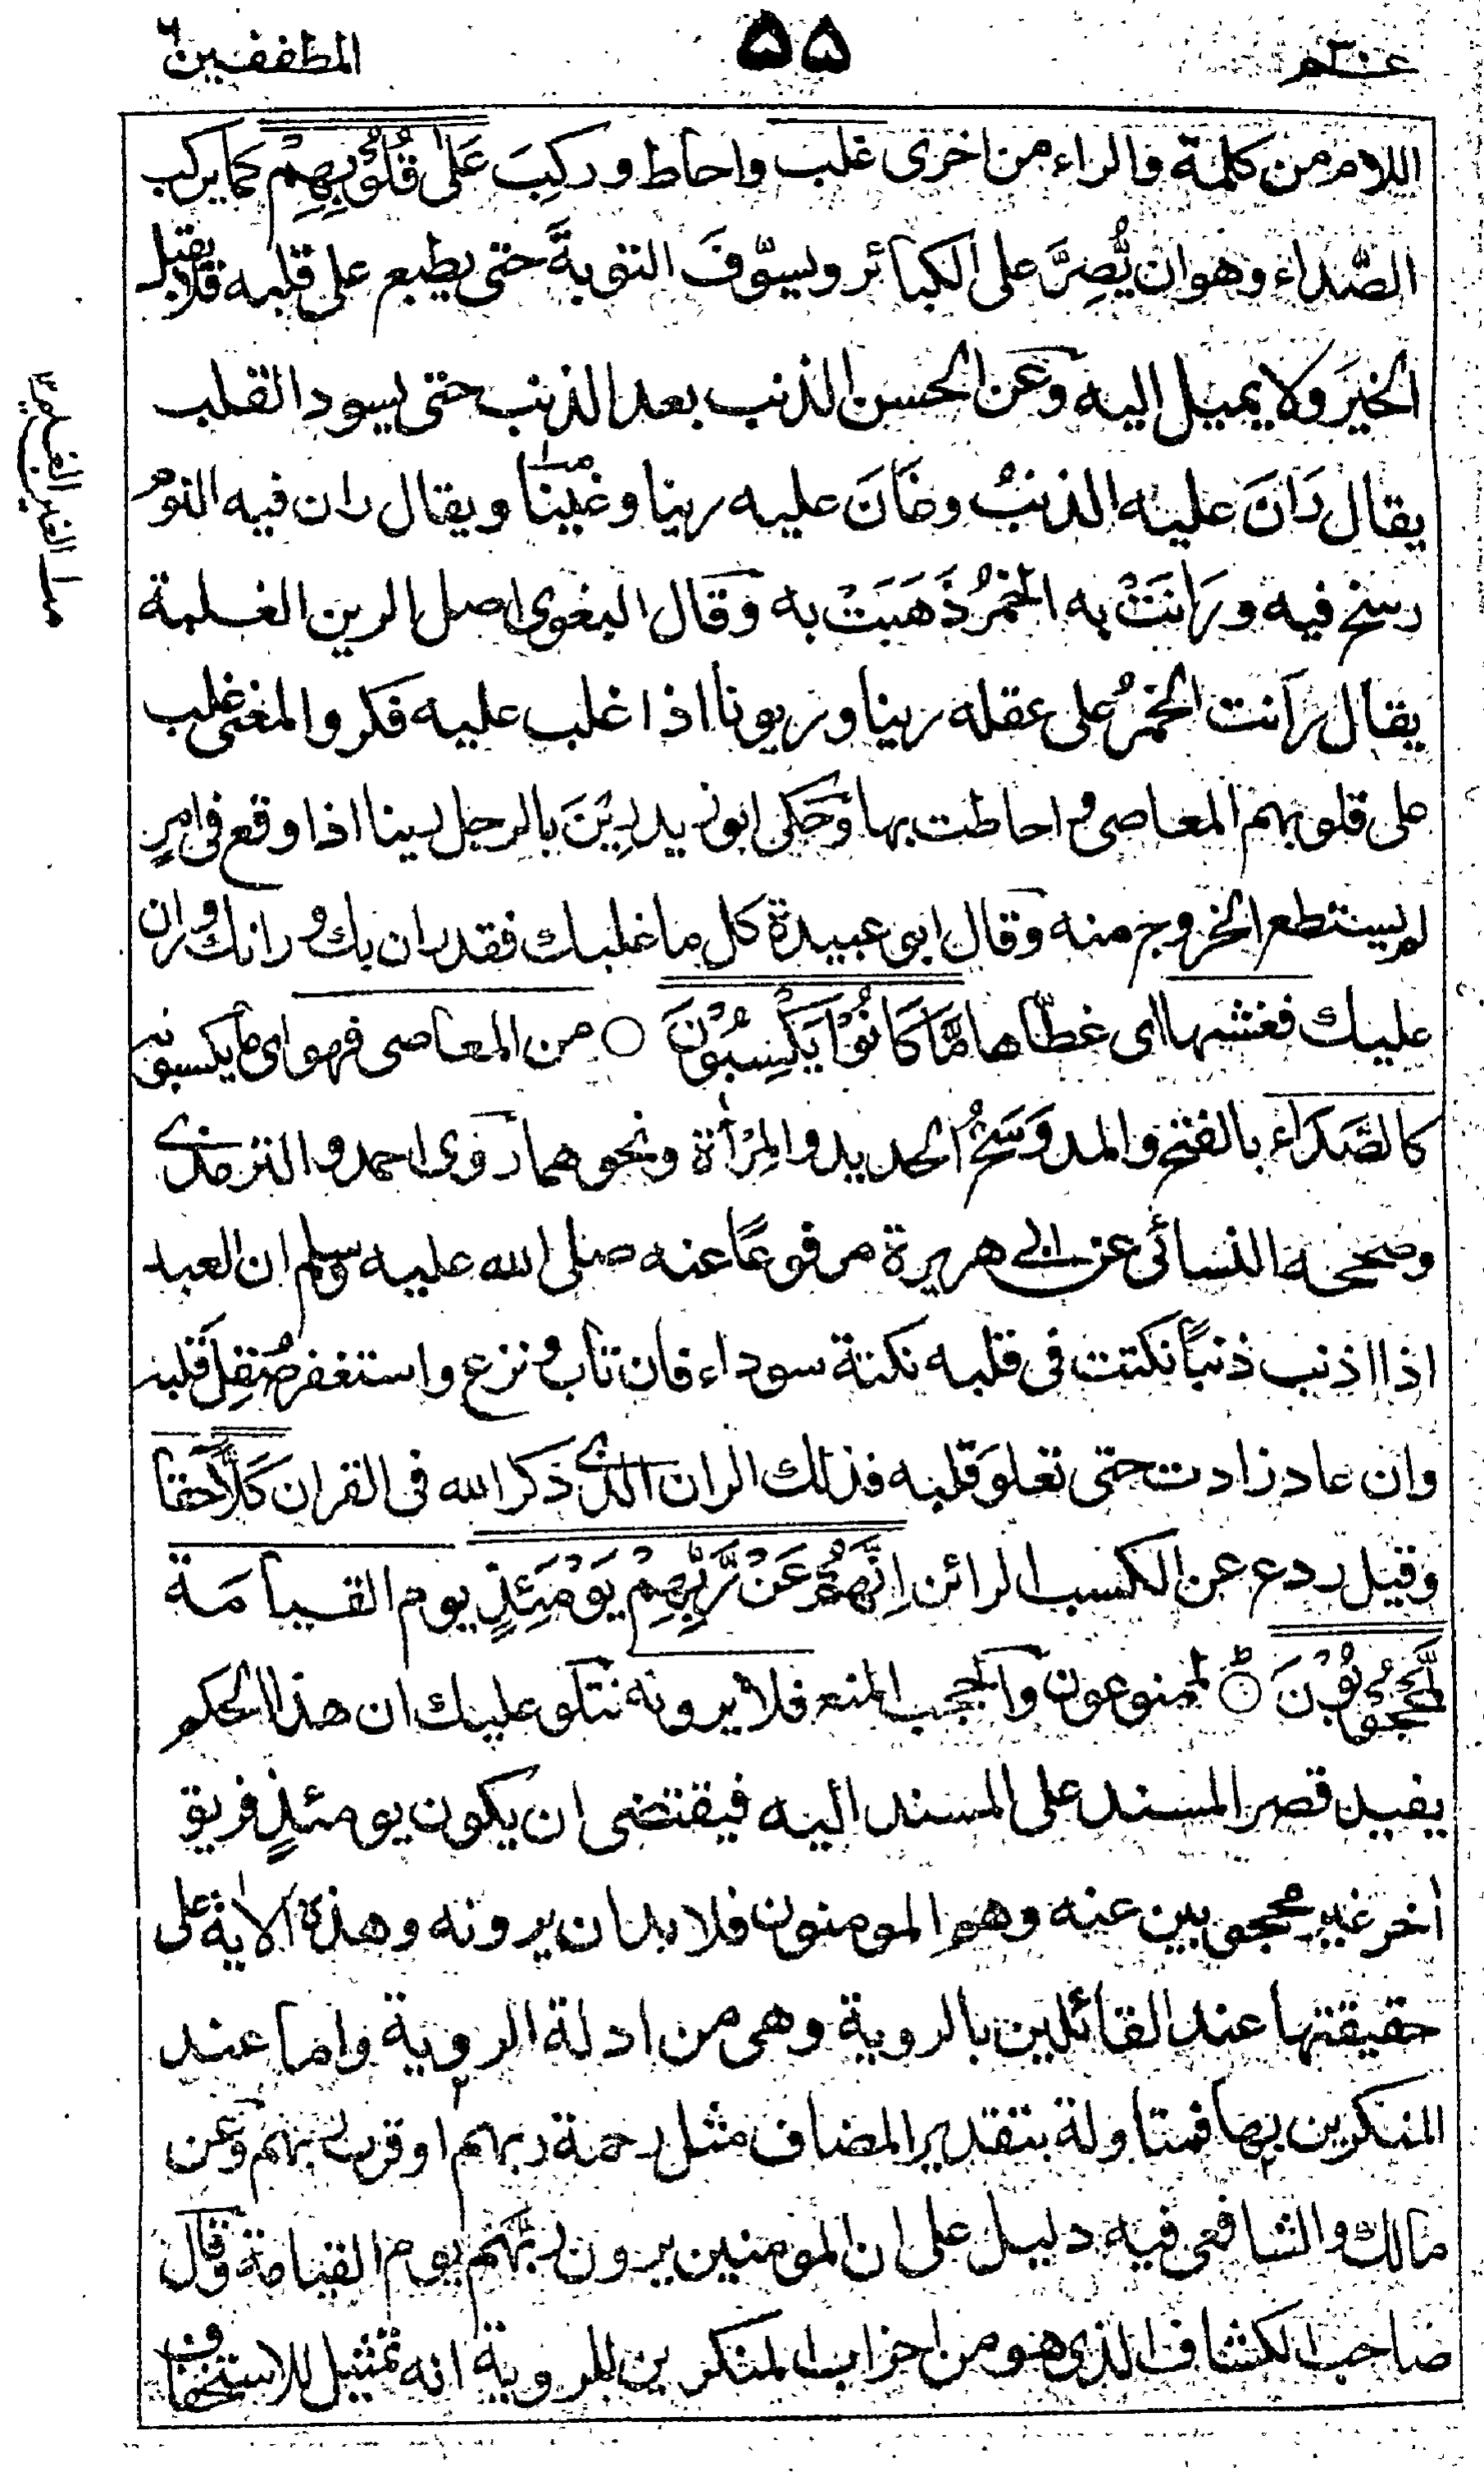 عـ٣٠ـم
٥٥
المطففين
اللام من كلمة والراء من اخرى غلب واحاط وركِبَ عَلٰى قُلُوْبِهِمْ كما يركب
الصّداء وهو ان يُّصِرَّ على الكبائر ويسوّفَ التوبةَ حتى يطبع على قلبه فلا يقبل
الخيرَ ولا يميل اليه وعن الحسن الذنب بعد الذنب حتى يسود القلب
يقال رَانَ عليه الذنبُ وغَانَ عليه رينا وغينًا ويقال ران فيه النوم
رسخ فيه ورَانَتْ به الخمرُ ذَهَبَتْ به وقال البغوى اصل الرين الغلبة
يقال رَانت الخمرُ على عقله رينا وريونا اذا غلب عليه فكر والمعنى غلب
على قلوبهم المعاصى واحاطت بها وحكى ابو زيد رِيْنَ بالرجل رينا اذا وقع فى امرٍ
لم يستطع الخروج منه وقال ابى عبيدة كل ما غلبك فقد ران بك ورانك وران
عليك فغشيها اى غطّاها مَّا كَانُوْا يَكْسِبُوْنَ ○ من المعاصى فهو اى ما يكسبونه
كالصَّدَاء بالفتح والمد وَسَخُ الحديد والمِرْأة ونحوهما روى احمد والترمذى
وصححه النسائى عن ابى هريرة مرفوعًا عنه صلى الله عليه وسلم ان العبد
اذا اذنب ذنبًا نكتت فى قلبه نكتة سوداء فان تاب ونزع واستغفر صُقِلَ قلبه
وان عاد زادت حتى تعلوَ قلبه فذلك الران الذى ذكر الله فى القران كَلَّا حقا
وقيل ردع عن الكسب الرائن اِنَّهُمْ عَنْ رَّبِّهِمْ يَوْمَئِذٍ يوم القيامَة
لَّمَحْجُوْبُوْنَ ○ لممنوعون والحجب المنع فلا يرونه نتلو عليك ان هذا الحكم
يفيد قصر المسند على المسند اليه فيقتضى ان يكون يومئذٍ فريق
اخر غير محجوبين عنه وهم المومنون فلا بد ان يرونه وهذه الاية على
حقيقتها عند القائلين بالروية وهى من ادلة الروية واما عند
المنكرين بها فمتاولة بتقدير المضاف مثل رحمة ربهم او قرب ربهم وعن
مالك والشافعى فيه دليل على ان المومنين يرون ربَّهم يوم القيامة وقال
صاحب الكشاف الذى هو من احزاب المنكرين للروية انه تمثيل للاستخفاف